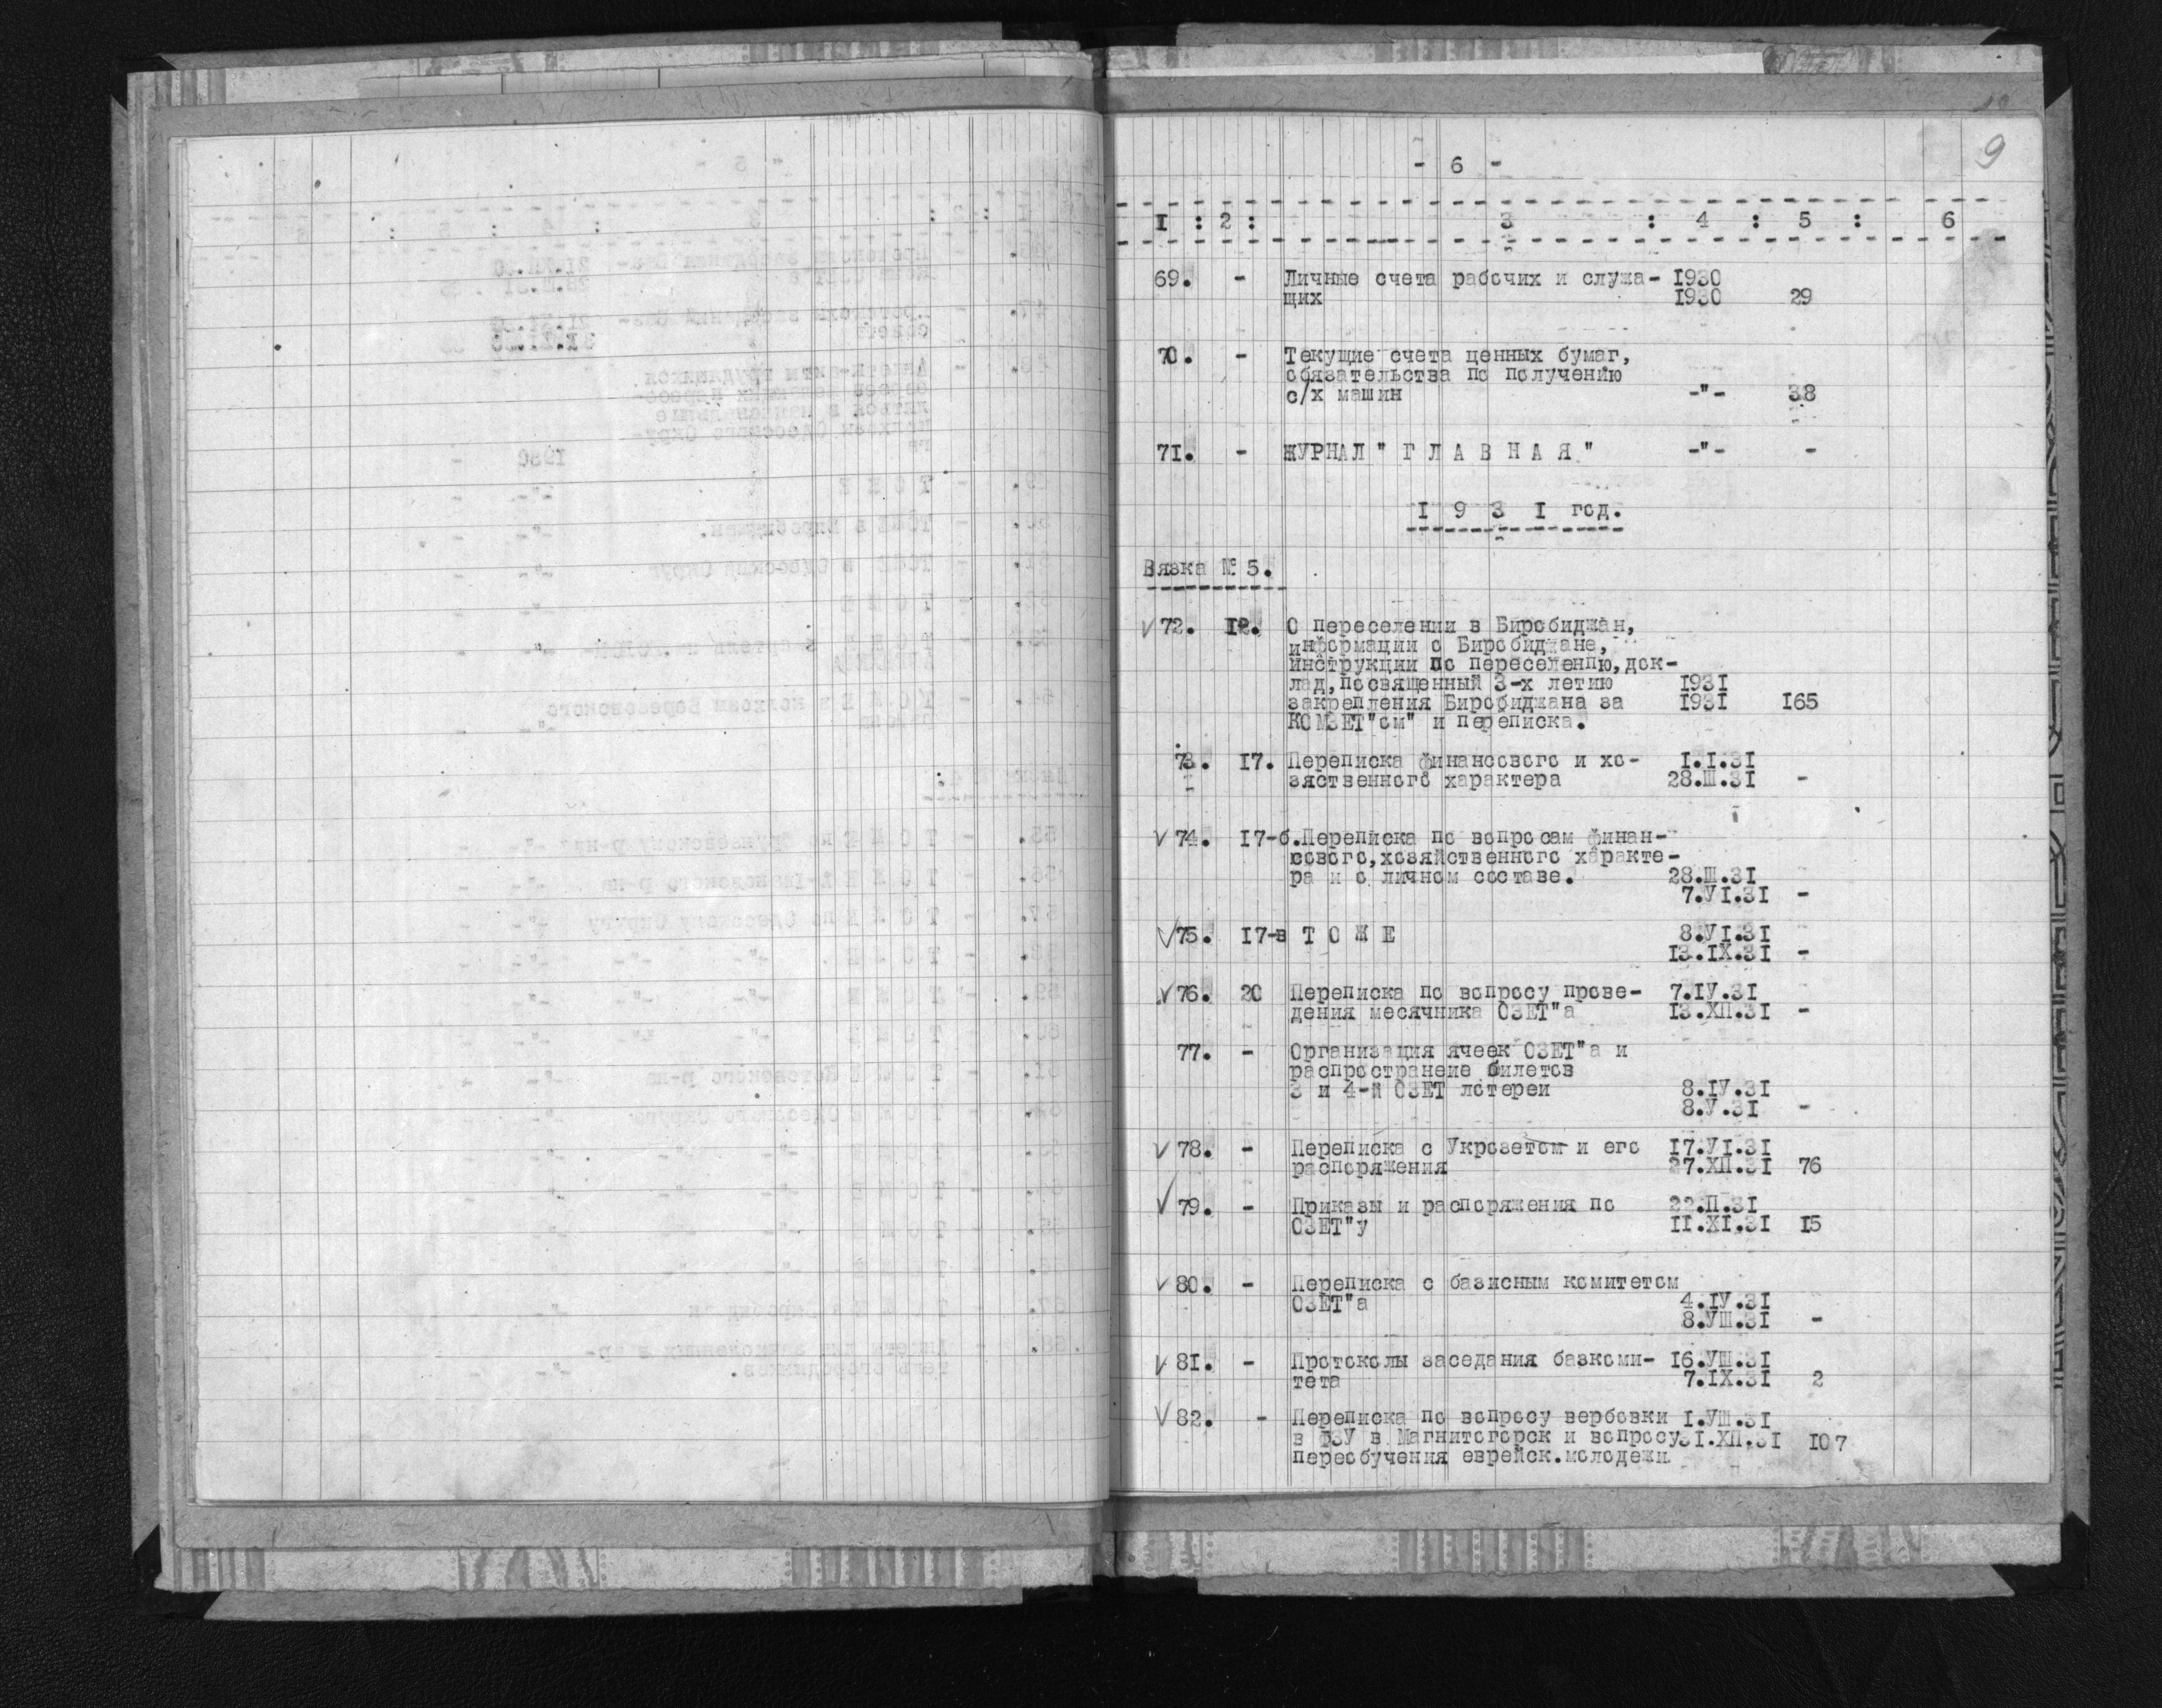 9
- 6 -
I : 2 : 3 : 4 : 5 : 6
69. - Личные счета рабочих и служа- 1930
щих 1930 29
70. - Текущие счета ценных бумаг,
обязательства по получению
с/х машин -"- 38
71. - ЖУРНАЛ "Г Л А В Н А Я" -"- -
I 9 3 I год.
Вязка № 5.
√ 72. 12. О переселении в Биробиджан,
информации о Биробиджане,
инструкции по переселению,док-
лад,посвященный 3-х летию 1931
закрепления Биробиджана за 1931 165
КОМЗЕТ"ом" и переписка.
73. 17. Переписка финансового и хо- I.I.31
зяственного характера 28.Ш.31 -
√ 74. 17-б.Переписка по вопросам финан-
сового,хозяйственного характе-
ра и о личном составе. 28.Ш.31
7.УI.31 -
√ 75. 17-в Т О Ж Е 8.УI.31
13.IХ.31 -
√ 76. 20 Переписка по вопросу прове- 7.IУ.31
дения месячника ОЗЕТ"а 13.ХП.31 -
77. - Организация ячеек ОЗЕТ"а и
распространеие билетов
3 и 4-й ОЗЕТ лотереи 8.IУ.31
8.У.31 -
√ 78. - Переписка с Укрозетом и его 17.УI.31
распоряжения 27.ХП.31 76
√ 79. - Приказы и распоряжения по 22.П.31
ОЗЕТ"у II.ХI.31 15
√ 80. - Переписка с базисным комитетом
ОЗЕТ"а 4.IУ.31
8.УШ.31 -
√ 81. - Протоколы заседания базкоми- 16.УШ.31
тета 7.IХ.31 2
√ 82. - Переписка по вопросу вербовки I.УШ.31
в ФЗУ в Магнитогорск и вопросу 31.ХП.31 107
переобучения еврейск.молодежи